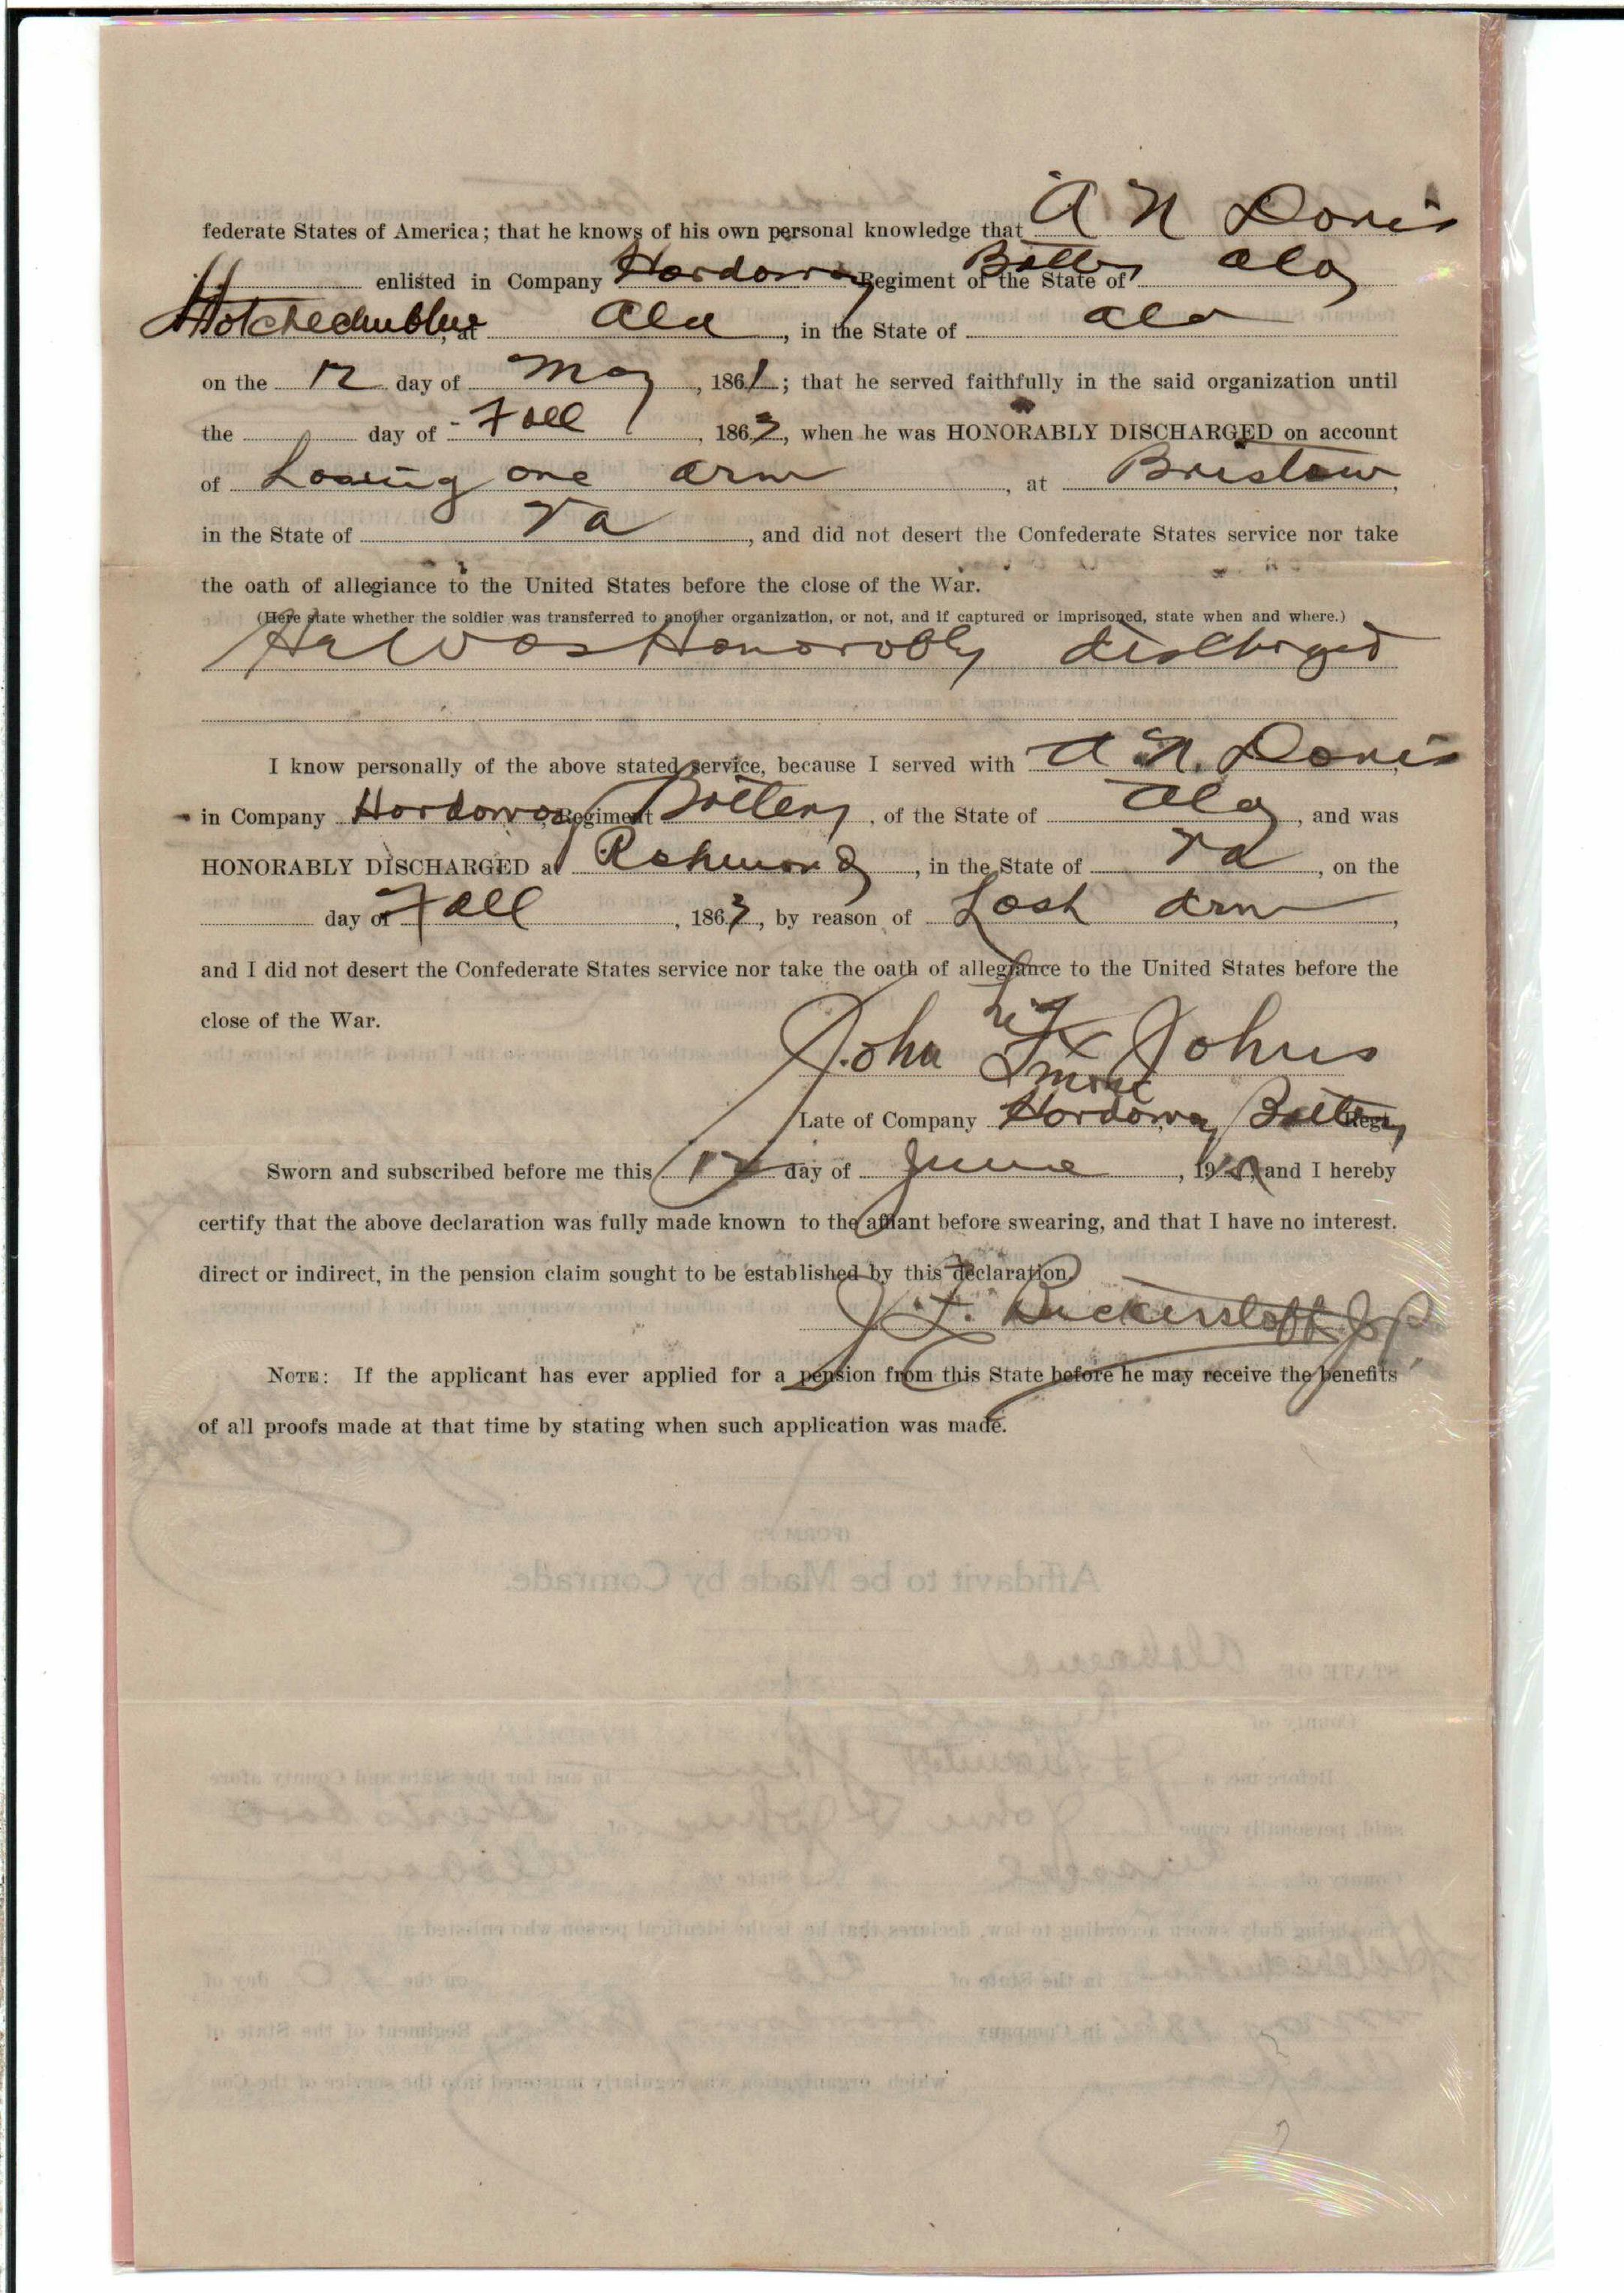 federate States of America; that he knows of his own personal knowledge that A N Davis
enlisted in Company Hardaway Regiment of the State of Battery Ala
Hotchechubbee, at Ala, in the State of Ala
on the 12 day of May, 1861; that he served faithfully in the said organization until
the day of Fall, 1863, when he was HONORABLY DISCHARGED on account
of Loosing one arm, at Bristow,
in the State of Va, and did not desert the Confederate States service nor take
the oath of allegiance to the United States before the close of the War.
(Here state whether the soldier was transferred to another organization, or not, and if captured or imprisoned, state when and where.)
He Was Honorobly discharged
I know personally of the above stated service, because I served with A. N. Davis
in Company Hardaway, Regiment Battery, of the State of Ala, and was
HONORABLY DISCHARGED at Richmond, in the State of Va, on the
day of Fall, 1863, by reason of Lost Arm,
and I did not desert the Confederate States service nor take the oath of allegiance to the United States before the
close of the War.
his
John F x Johns
mark
Late of Company Hardaway Battery Regt.
Sworn and subscribed before me this day of June, 19 and I hereby
certify that the above declaration was fully made known to the affiant before swearing, and that I have no interest.
direct or indirect, in the pension claim sought to be established by this declaration.
J. F. Bickerstaff J P
NOTE: If the applicant has ever applied for a pension from this State before he may receive the benefits
of all proofs made at that time by stating when such application was made.